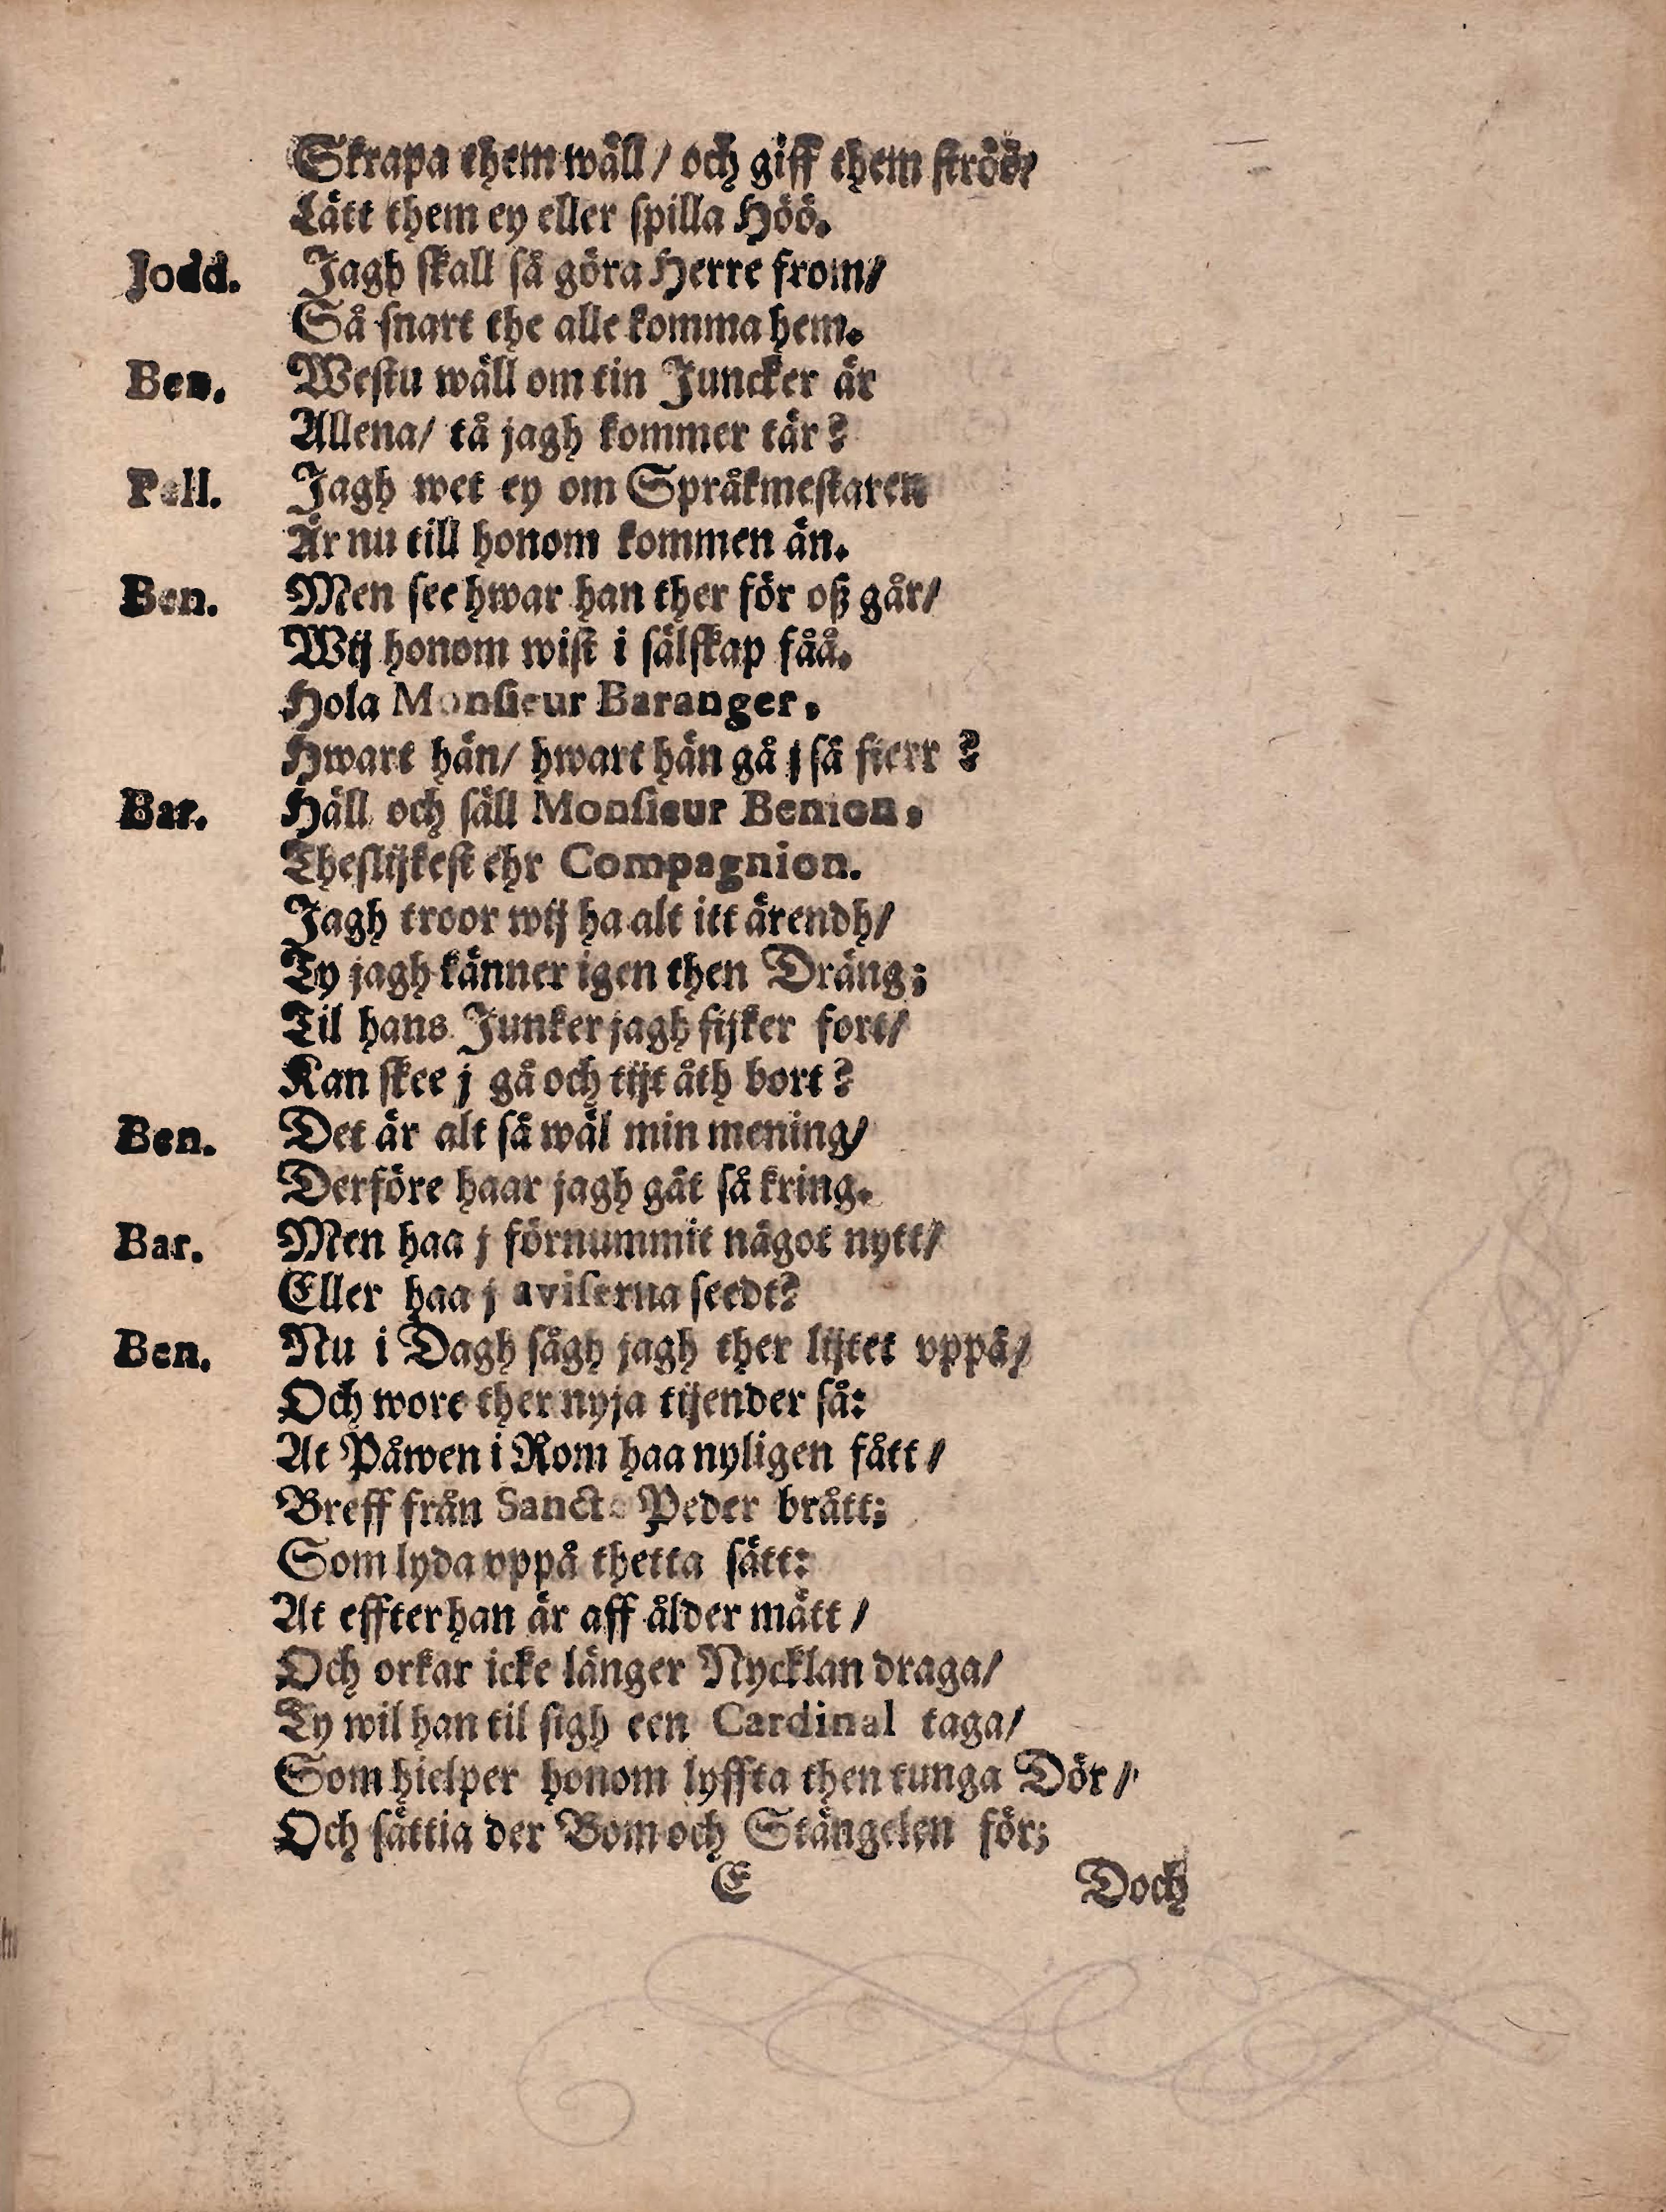 Skrapa them wäll / och giff them ströö/
Lätt them ey eller spilla Höö.
Jodd. Jagh skall så göra Herre from/
Så snart the alle komma hem.
Ben. Westu wäll om tin Juncker är
Allena/ tå jagh kommer tär?
Pell. Jagh wet ey om Språkmestaren
Är nu till honom kommen än.
Ben. Men see hwar han ther för oß går/
Wij honom wist i sälskap fåå.
Hola Monsieur Baranger.
Hwart hän/ hwart hän gå j så fierr ?
Bar. Häll och säll Monsieur Benion.
Theslijkest ehr Compagnion.
Jagh troor wij ha alt itt ärendh/
Ty jagh känner igen then Dräng;
Til hans Junker jagh fijker fort/
Kan skee j gå och tijt åth bort?
Ben. Det är alt så wäl min mening/
Derföre haar jagh gåt så kring.
Bar. Men haa j förnummit något nytt/
Eller haa j aviserna seedt?
Ben. Nu i Dagh sågh jagh ther lijtet vppå/
Och wore ther nyja tijender så:
At Påwen i Rom haa nyligen fått /
Breff från Sancto Peder brått;
Som lyda vppå thetta sätt:
At effter han är aff ålder mätt /
Och orkar icke länger Nycklan draga/
Ty wil han til sigh een Cardinal taga/
Som hielper honom lyffta then tunga Dör /
Och sättia der Bom och Stängelen för;
E Doch